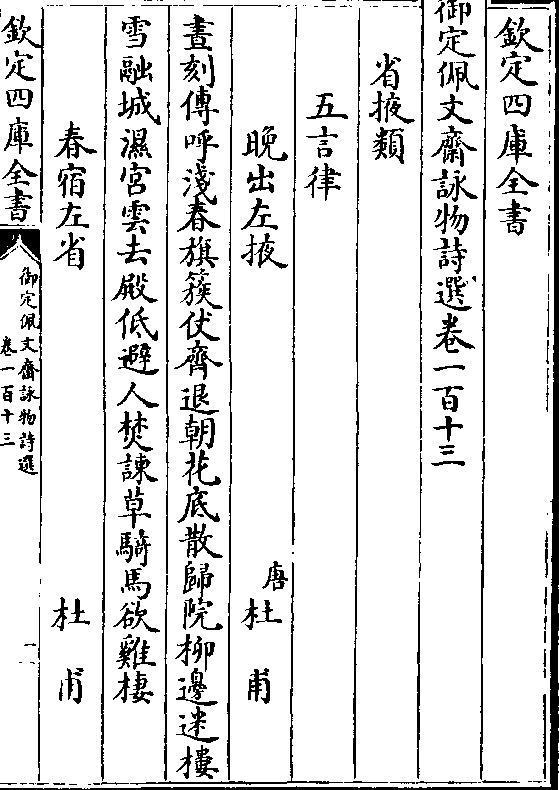 欽定四庫全書
御定佩文齋詠物詩選卷一百十三
省掖類
五言律
晚出左掖 唐杜甫
晝刻傳呼淺春旗簇仗齊退朝花底散歸院柳邊迷樓
雪融城濕宮雲去殿低避人焚諫草騎馬欲雞棲
春宿左省 杜甫
欽定四庫全書
御定佩文齋詠物詩選
卷一百十三
一